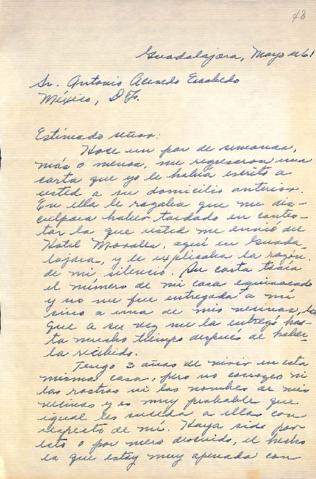 48
Guadalajara, Mayo de 61
Sr. Antonio Acevedo Escobedo
México, D.F.
Estimado señor:
Hace un par de semanas,
más o menos, me regresaron una
carta que yo le había escrito a
usted a su domicilio anterior.
En ella le rogaba que me dis-
culpara haber tardado en contes-
tar la que usted me envió del
Hotel Morales, aquí en Guada-
lajara, y le explicaba la razón
de mi silencio. Su carta traía
el número de mi casa equivocado
y no me fue entregada a mí
sino a una de mis vecinas, la
que a su vez me la entregó has-
ta mucho tiempo después de haber
la recibido.
Tengo 3 años de vivir en esta
misma casa, pero no conozco ni
los rostros ni los nombres de mis
vecinas y es muy probable que
igual les suceda a ellas con
respecto de mí. Haya sido por
esto o por mero descuido, el hecho
es que estoy muy apenada con